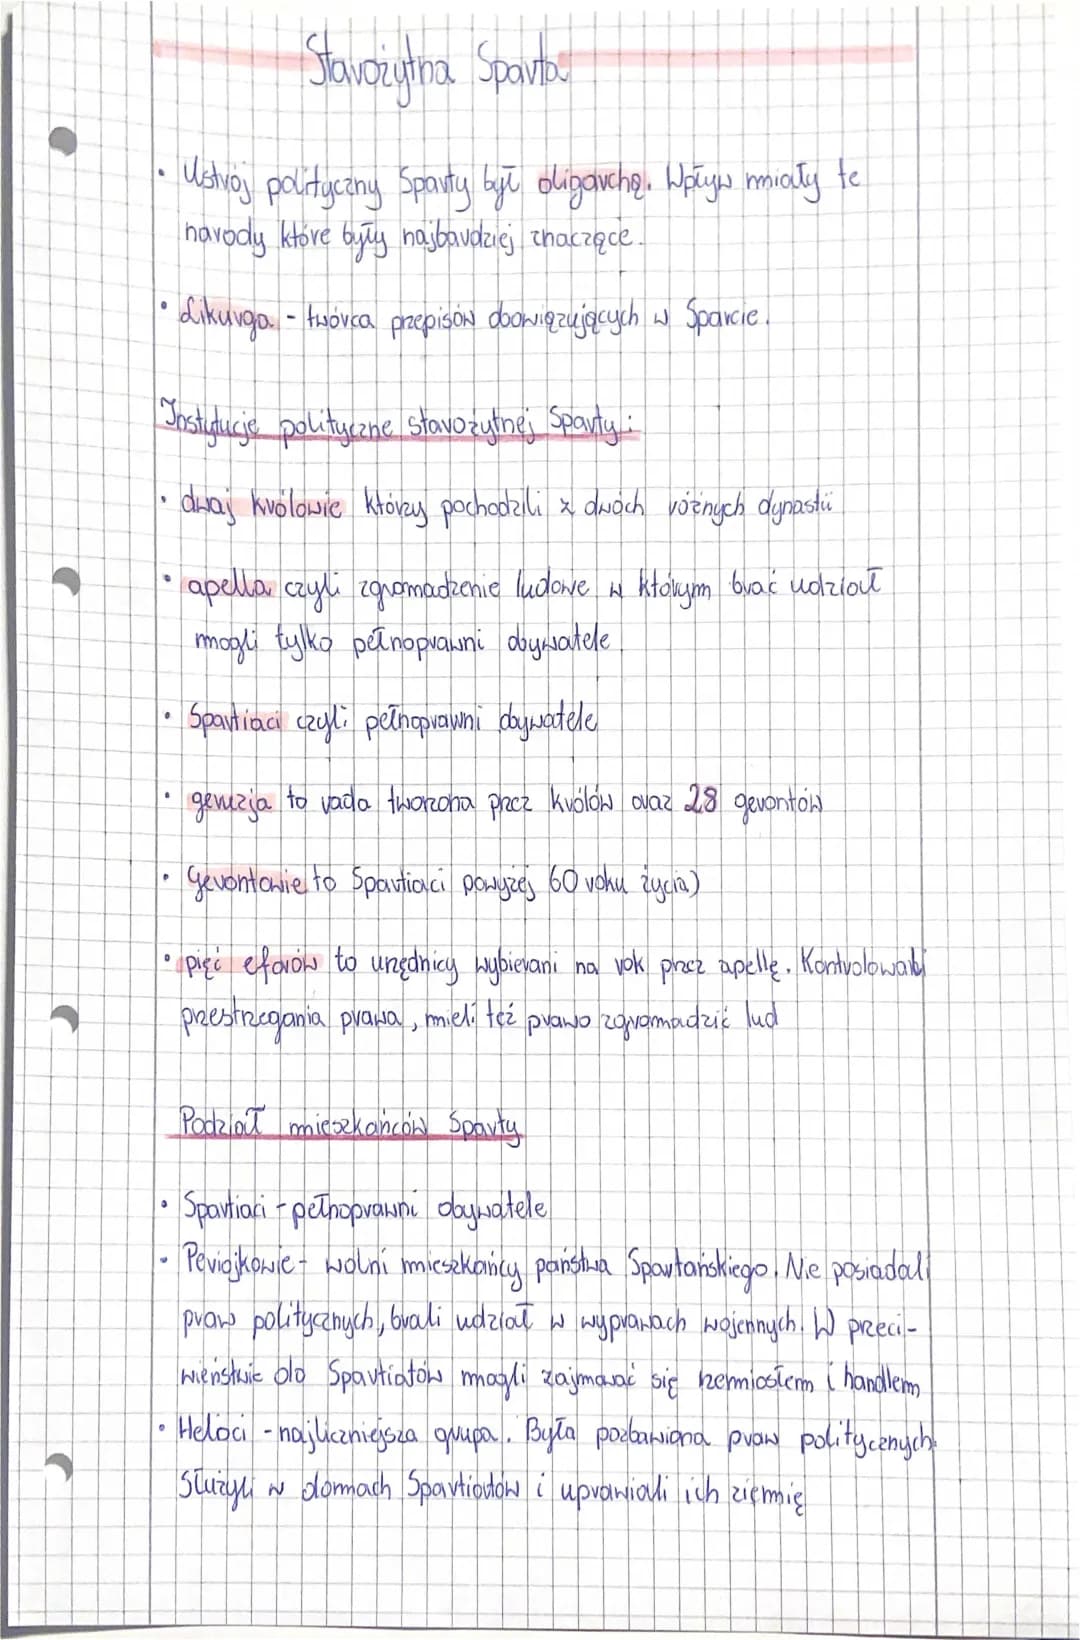 Starożytna Sparta
• Ustrój polityczny Sparty był oligarchą. Wpływ miały te
narody które były najbardziej znaczące.
• Likurga - twórca przepisów obowiązujących w Sparcie.
Instytucje polityczne starożytnej Sparty:
• dwaj królowie którzy pochodzili z dwóch różnych dynastii
• apella czyli zgromadzenie ludowe w którym brać udział
mogli tylko pełnoprawni obywatele
• Spartiaci czyli pełnoprawni obywatele
• geruzja to rada tworzona przez królów oraz 28 gerontów
• Gerontowie to Spartiaci powyżej 60 roku życia)
• pięć eforów to urzędnicy wybierani na rok przez apellę. Kontrolowali
przestrzegania prawa, mieli też prawo zgromadzić lud
Podział mieszkańców Sparty
• Spartiaci - pełnoprawni obywatele
• Periojkowie - wolni mieszkańcy państwa Spartańskiego. Nie posiadali
praw politycznych, brali udział w wyprawach wojennych. W przeci-
wieństwie do Spartiatów mogli zajmować się rzemiosłem i handlem
• Heloci - najliczniejsza grupa. Była pozbawiona praw politycznych.
Służyli w domach Spartiatów i uprawiali ich ziemię